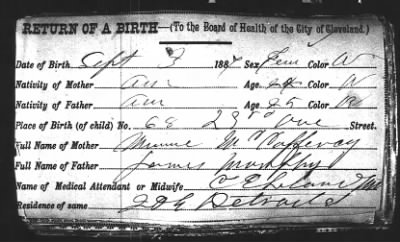 RETURN OF A BIRTH—(To the Board of Health of the City of Cleveland.)
Date of Birth Sept 3 1884 Sex Fem Color W
Nativity of Mother Am Age 24 Color W
Nativity of Father Am Age 25 Color W
Place of Birth (of child) No. 68 23rd Ave Street.
Full Name of Mother Minnie McCafferay
Full Name of Father James Murphy
Name of Medical Attendant or Midwife C E
Residence of same Detroit St